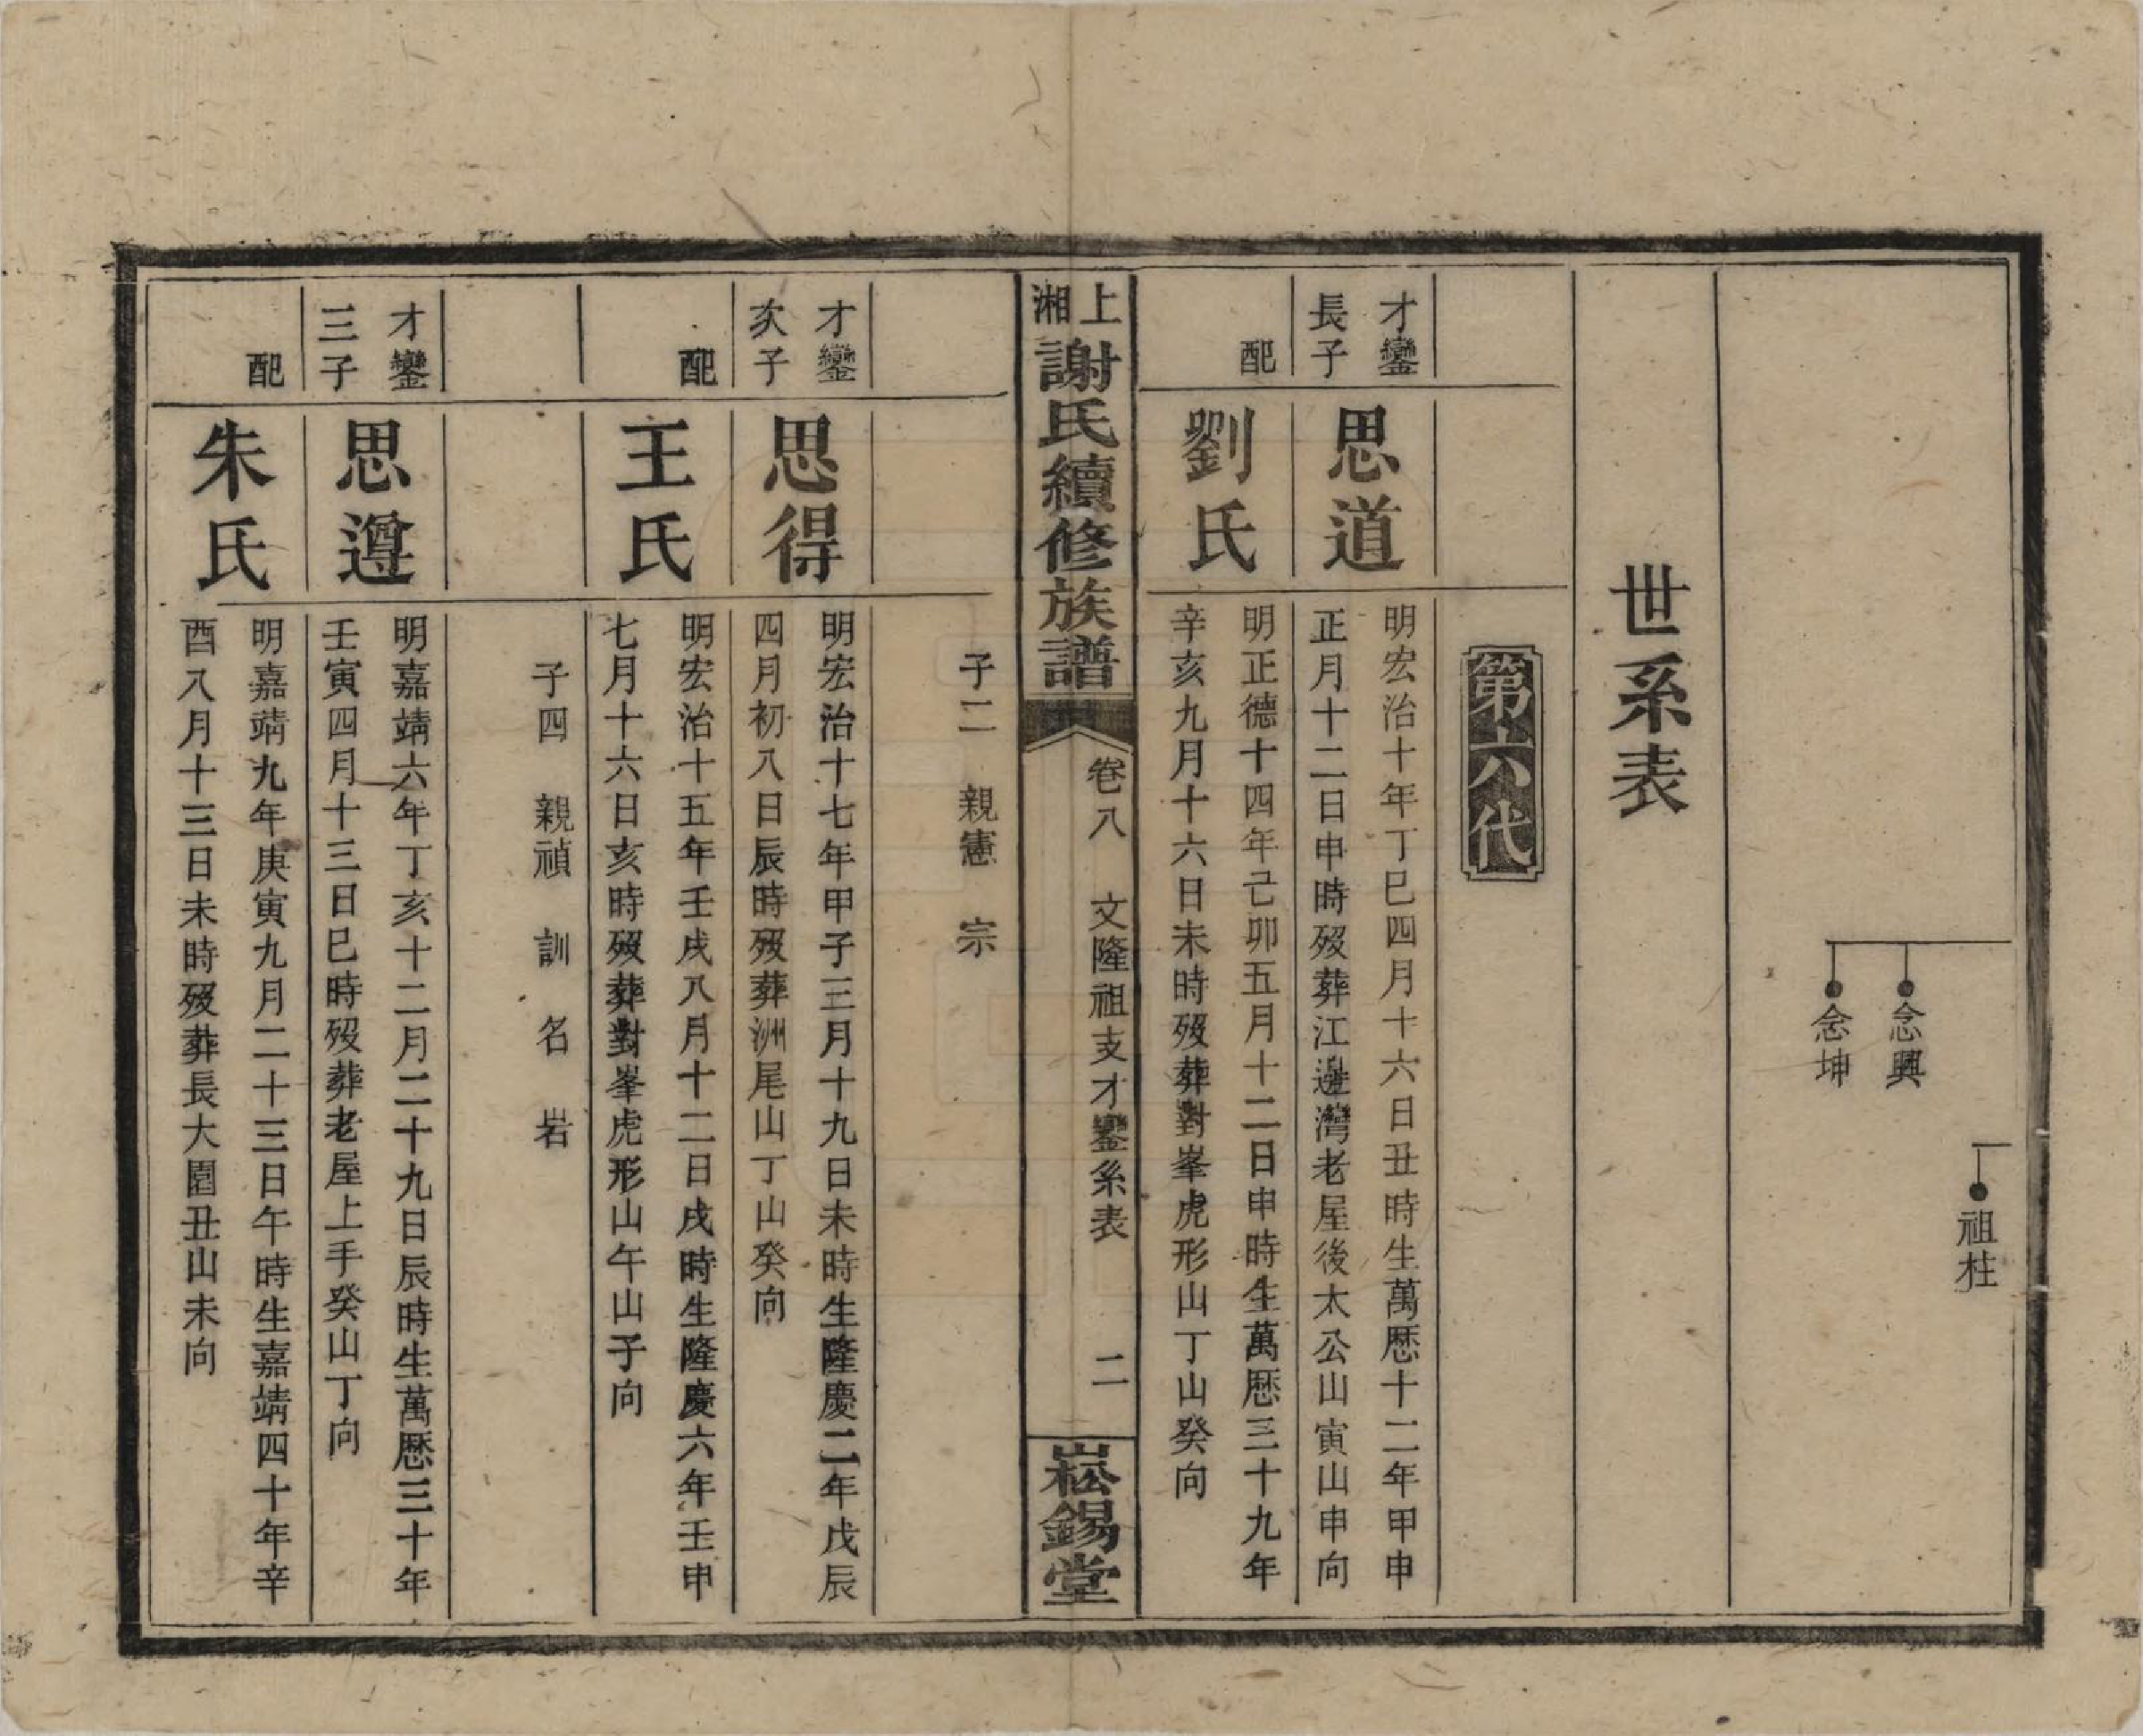 祖柱
念興
念坤
世系表
第六代
才鑾
長子
思道
明宏治十年丁巳四月十六日丑時生萬歷十二年甲申
正月十二日申時歿葬江邊灣老屋後太公山寅山申向
配
劉氏
明正德十四年己卯五月十二日申時生萬歷三十九年
辛亥九月十六日未時歿葬對峯虎形山丁山癸向
上湘
謝氏續修族譜
卷八 文隆祖支才鑾系表 二
崧錫堂
子二 親憲 宗
才鑾
次子
思得
明宏治十七年甲子三月十九日未時生隆慶二年戊辰
四月初八日辰時歿葬洲尾山丁山癸向
配
王氏
明宏治十五年壬戌八月十二日戌時生隆慶六年壬申
七月十六日亥時歿葬對峯虎形山午山子向
子四 親禎 訓 名 岩
才鑾
三子
思遵
明嘉靖六年丁亥十二月二十九日辰時生萬歷三十年
壬寅四月十三日巳時歿葬老屋上手癸山丁向
配
朱氏
明嘉靖九年庚寅九月二十三日午時生嘉靖四十年辛
酉八月十三日未時歿葬長大園丑山未向